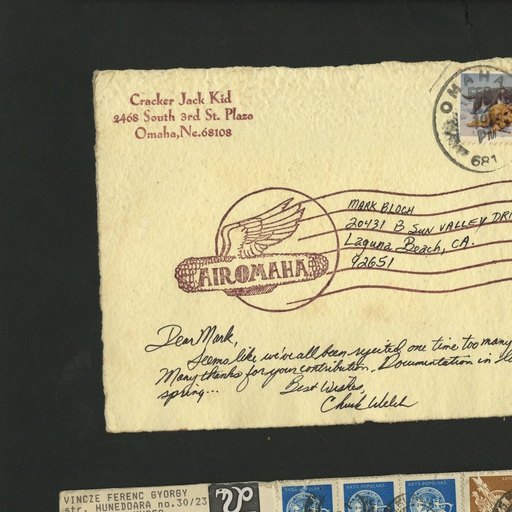 Cracker Jack Kid
2468 South 3rd St. Plaza
Omaha,Ne.68108
OMAHA
PM
681
MARK BLOCH
20431 B SUN VALLEY DRI
Laguna Beach, CA.
92651
AIROMAHA
Dear Mark,
Seems like we've all been rejected one time too many
Many thanks for your contribution. Documentation in
spring...
Best Wishes,
Chuck Welch
VINCZE FERENC GYORGY
str. HUNEDOARA no.30/23